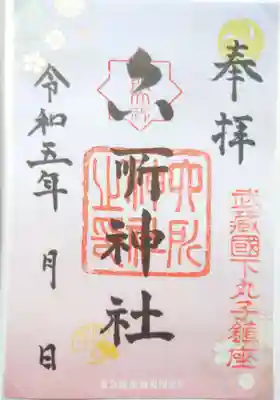 奉拝
武蔵國下丸子鎮座
六所神社
六所
神社
之印
令和五年 月 日